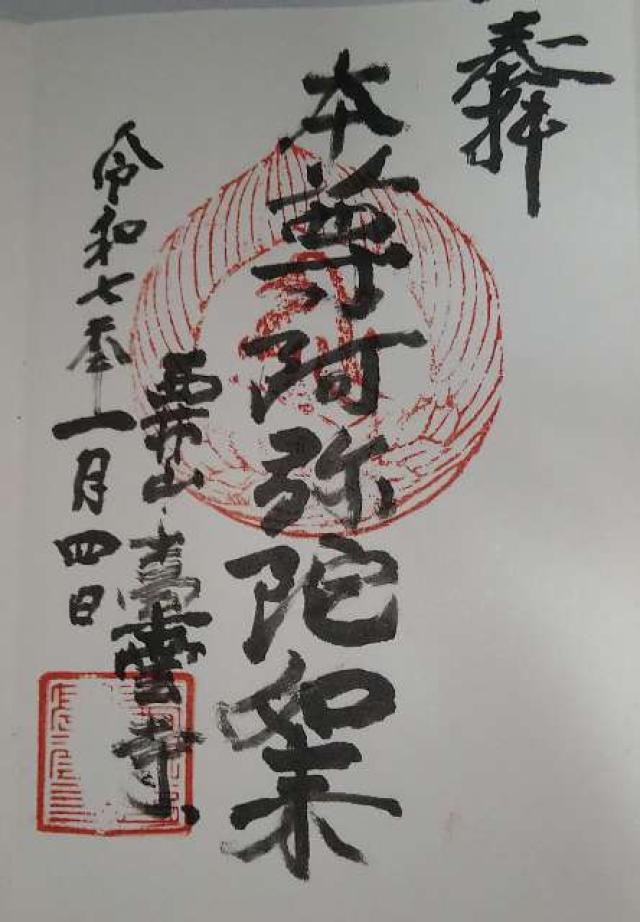 奉拝
本尊阿弥陀如来
山 臺雲寺
令和七年一月四日